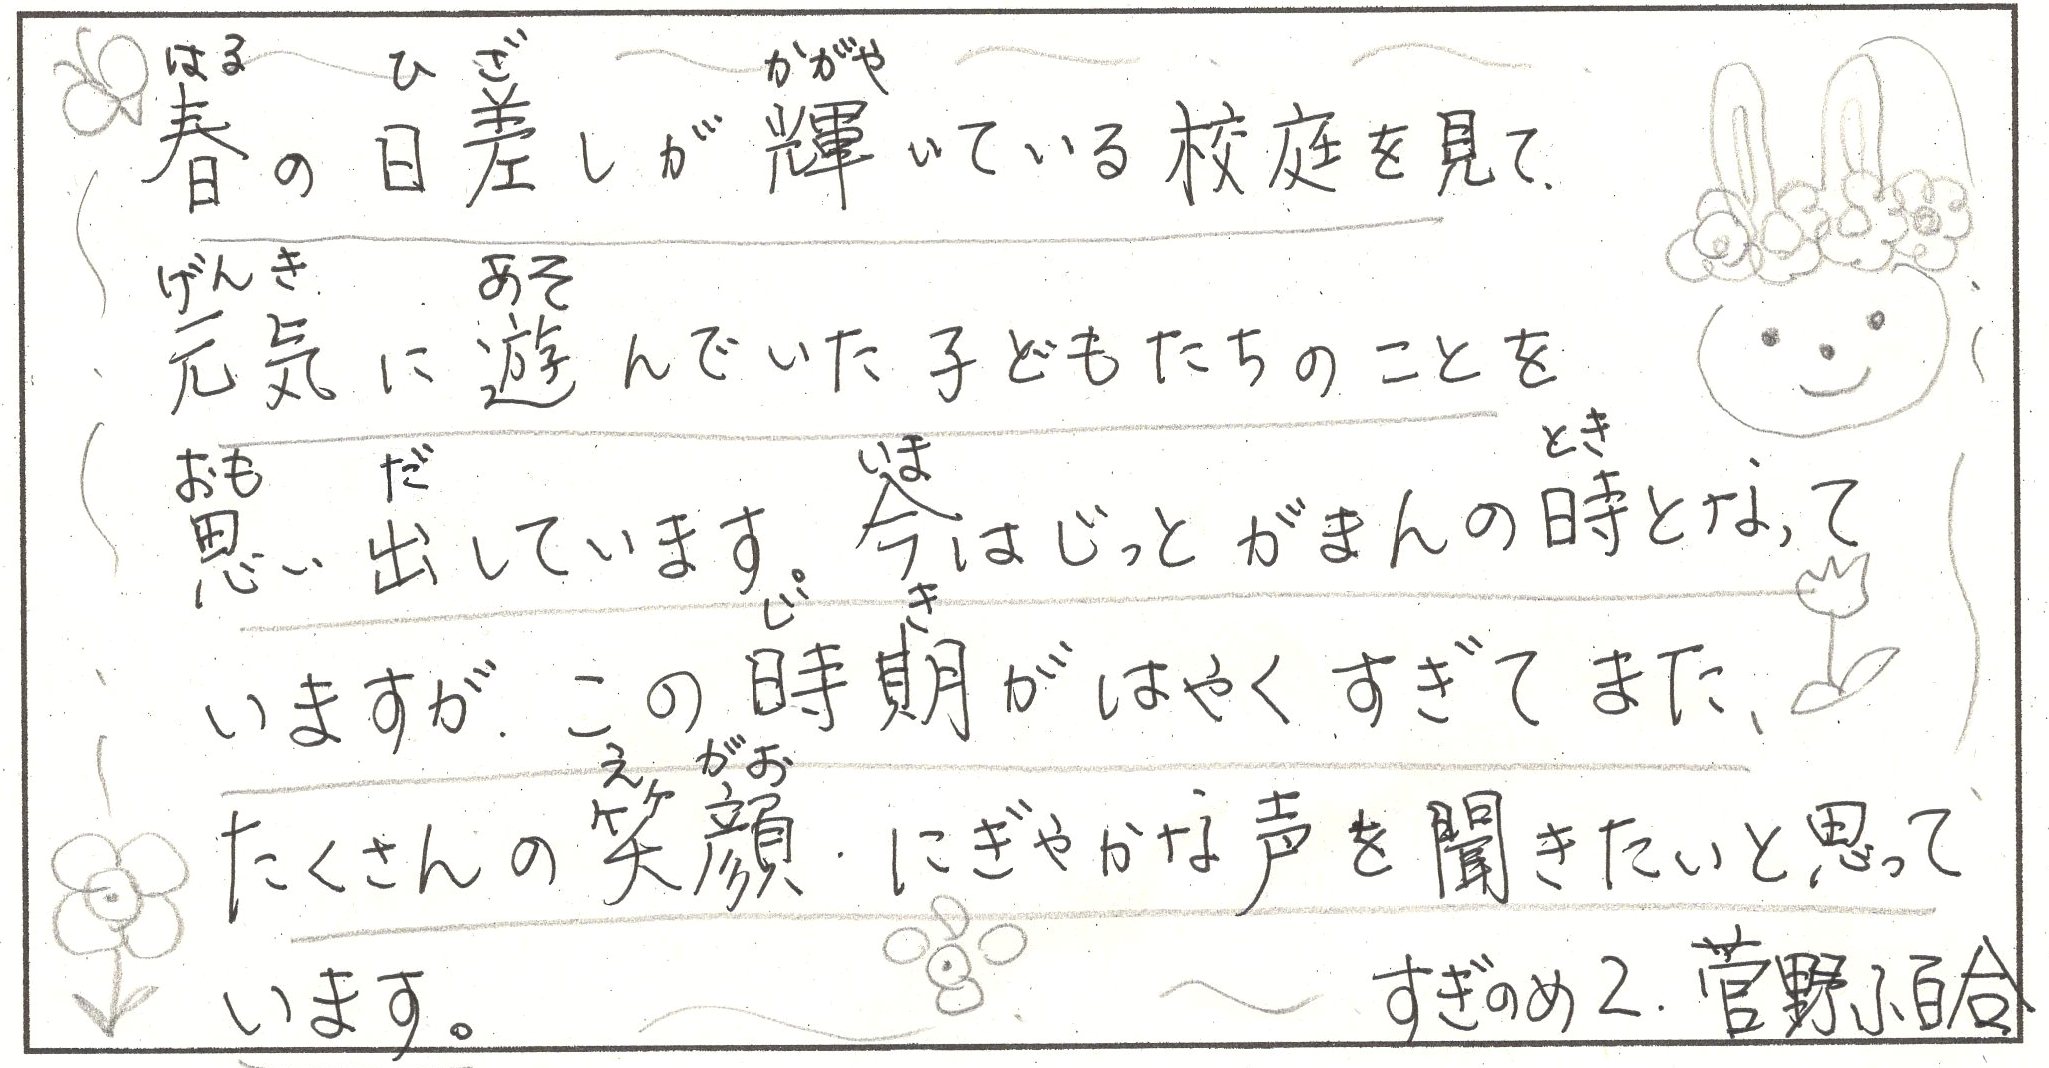 はる ひ ざ かがや
春の日差しが輝いている校庭を見て、
げんき あそ
元気に遊んでいた子どもたちのことを
おも だ いま とき
思い出しています。今はじっとがまんの時となって
じ き
いますが、この時期がはやくすぎてまた、
え がお
たくさんの笑顔・にぎやかな声を聞きたいと思って
います。
すぎのめ2.菅野小百合